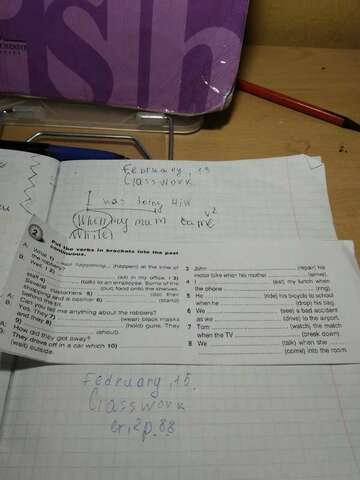 February, 13
Classwork
I was doing H/W
(When) my mum came V2
(While)
2 Put the verbs in brackets into the past
continuous.
(happen) at the time of
the robbery?
B: Yes. I 2) (sit) in my office. I 3)
(talk) to an employee. Some of the
staff 4) (put) food onto the shelves.
Several customers 5) (do) their
shopping and a cashier 6) (stand)
behind the till.
A: Can you tell me anything about the robbers?
B: Yes. They 7) (wear) black masks
and they 8) (hold) guns. They
9) (shout).
A: How did they get away?
B: They drove off in a car which 10)
(wait) outside.
3 John (repair) his
motor bike when his mother (arrive).
4 I (eat) my lunch when
the phone (ring).
5 He (ride) his bicycle to school
when he (drop) his bag.
6 We (see) a bad accident
as we (drive) to the airport.
7 Tom (watch) the match
when the TV (break down).
8 We (talk) when she
(come) into the room.
February, 15
Classwork
ex, 2 p. 88